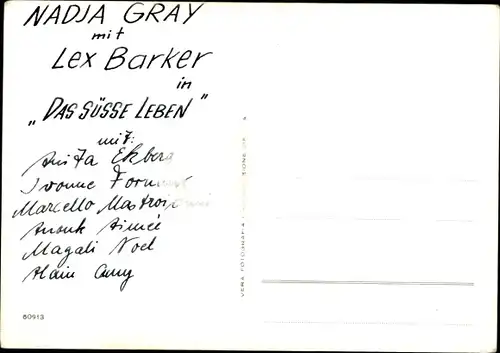 NADJA GRAY
mit
Lex Barker
in
„DAS SÜSSE LEBEN"
mit:
Anita Ekberg
Ivonne
Marcello
Anouk Aimée
Magali Noel
Alain Cuny
VERA FOTOGRAFIA
60913